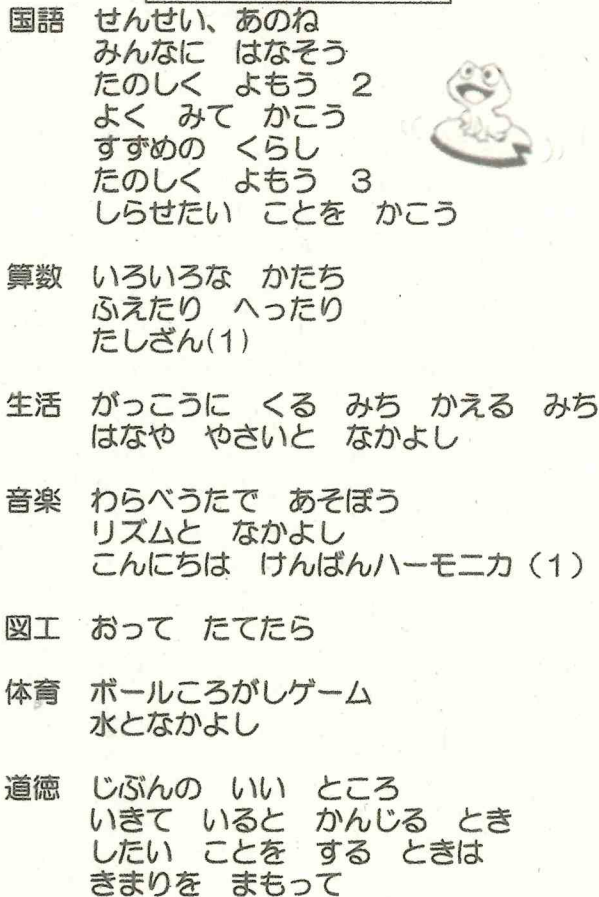 国語　せんせい、あのね
みんなに　はなそう
たのしく　よもう　2
よく　みて　かこう
すずめの　くらし
たのしく　よもう　3
しらせたい　ことを　かこう
算数　いろいろな　かたち
ふえたり　へったり
たしざん(1)
生活　がっこうに　くる　みち　かえる　みち
はなや　やさいと　なかよし
音楽　わらべうたで　あそぼう
リズムと　なかよし
こんにちは　けんばんハーモニカ（1）
図工　おって　たてたら
体育　ボールころがしゲーム
水となかよし
道徳　じぶんの　いい　ところ
いきて　いると　かんじる　とき
したい　ことを　する　ときは
きまりを　まもって